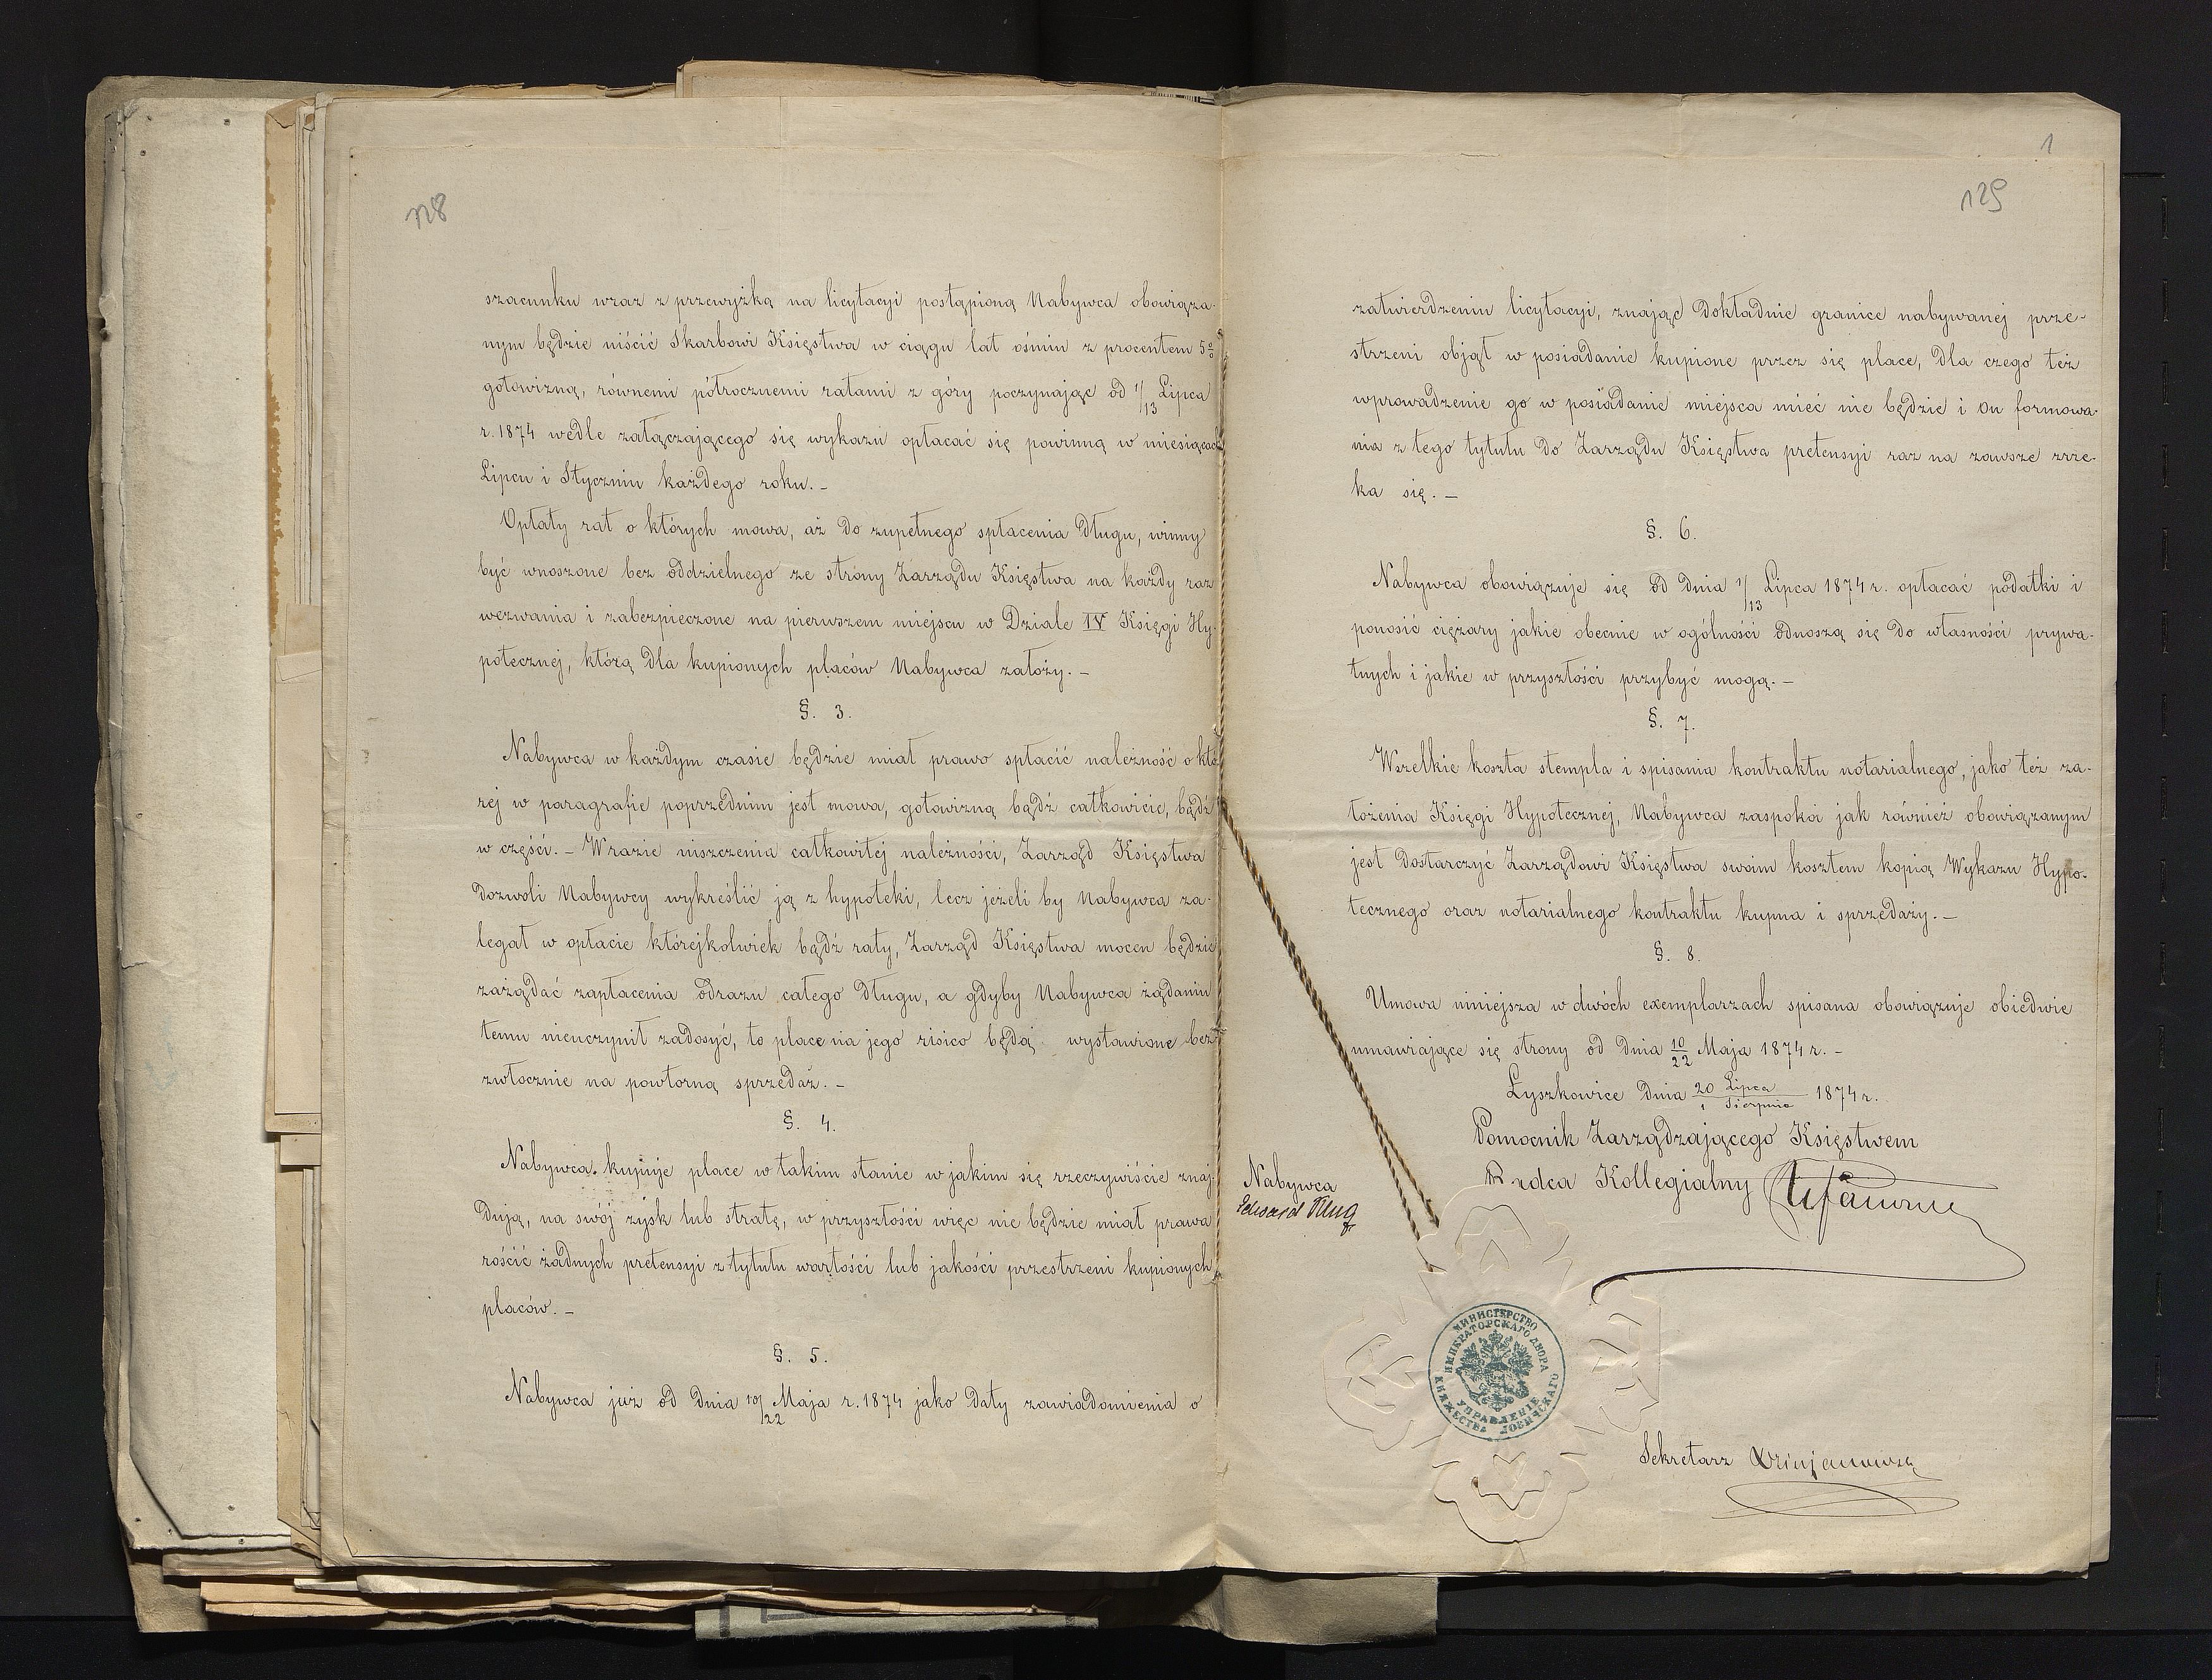 128
szacunku wraz z przewyżką na licytacyi postąpioną Nabywca obowiąza-
nym będzie uiścić Skarbowi Księstwa w ciągu lat ośmiu z procentem 5%
gotowizną, równemi półrocznemi ratami z góry poczynając od 1/13 Lipca
r. 1874 wedle załączającego się wykazu opłacać się powinną w miesiącach
Lipcu i Styczniu każdego roku. -
Opłaty rat o których mowa, aż do zupełnego spłacenia długu, winny
być wnoszone bez oddzielnego ze strony Zarządu Księstwa na każdy raz
wezwania i zabezpieczone na pierwszem miejscu w Dziale IV Księgi Hy-
potecznej, którą dla kupionych placów Nabywca założy. -
§. 3.
Nabywca w każdym czasie będzie miał prawo spłacić należność o któ-
rej w paragrafie poprzednim jest mowa, gotowizną bądź całkowicie, bądź
w części. - W razie uiszczenia całkowitej należności, Zarząd Księstwa
dozwoli Nabywcy wykreślić ją z hypoteki, lecz jeżeli by Nabywca za-
legał w opłacie którejkolwiek bądź raty, Zarząd Księstwa mocen będzie
zażądać zapłacenia odrazu całego długu, a gdyby Nabywca żądaniu
temu nieuczynił zadosyć, to place na jego risico będą wystawione bez-
zwłocznie na powtorną sprzedaż. -
§. 4.
Nabywca kupuje place w takim stanie w jakim się rzeczywiście znaj-
dują, na swój zysk lub stratę, w przyszłości więc nie będzie miał prawa
rościć żadnych pretensyi z tytułu wartości lub jakości przestrzeni kupionych
placów. -
§. 5.
Nabywca już od dnia 10/22 Maja r. 1874 jako daty zawiadomienia o
1
129
zatwierdzeniu licytacyi, znając dokładnie granice nabywanej prze-
strzeni objął w posiadanie kupione przez się place, dla czego też
wprowadzenie go w posiadanie miejsca mieć nie będzie i on formowa-
nia z tego tytułu do Zarządu Księstwa pretensyi raz na zawsze zrze-
ka się. -
§. 6.
Nabywca obowiązuje się od dnia 1/13 Lipca 1874 r. opłacać podatki i
ponosić ciężary jakie obecnie w ogólności odnoszą się do własności prywa-
tnych i jakie w przyszłości przybyć mogą. -
§. 7.
Wszelkie koszta stempla i spisania kontraktu notarialnego, jako też za-
łożenia Księgi Hypotecznej, Nabywca zaspokoi jak również obowiązanym
jest dostarczyć Zarządowi Księstwa swoim kosztem kopią Wykazu Hypo-
tecznego oraz notarialnego kontraktu kupna i sprzedaży. -
§. 8.
Umowa niniejsza w dwóch exemplarzach spisana obowiązuje obiedwie
umawiające się strony od dnia 10/22 Maja 1874 r. -
Łyszkowice dnia 20 Lipca / 1 Sierpnia 1874 r.
Pomocnik Zarządzającego Księstwem
Radca Kollegialny
Nabywca
Edward Klug
МИНИСТЕРСТВО
ИМПЕРАТОРСКАГО ДВОРА
УПРАВЛЕНІЕ
КНЯЖЕСТВА ЛОВИЧСКАГО
Sekretarz